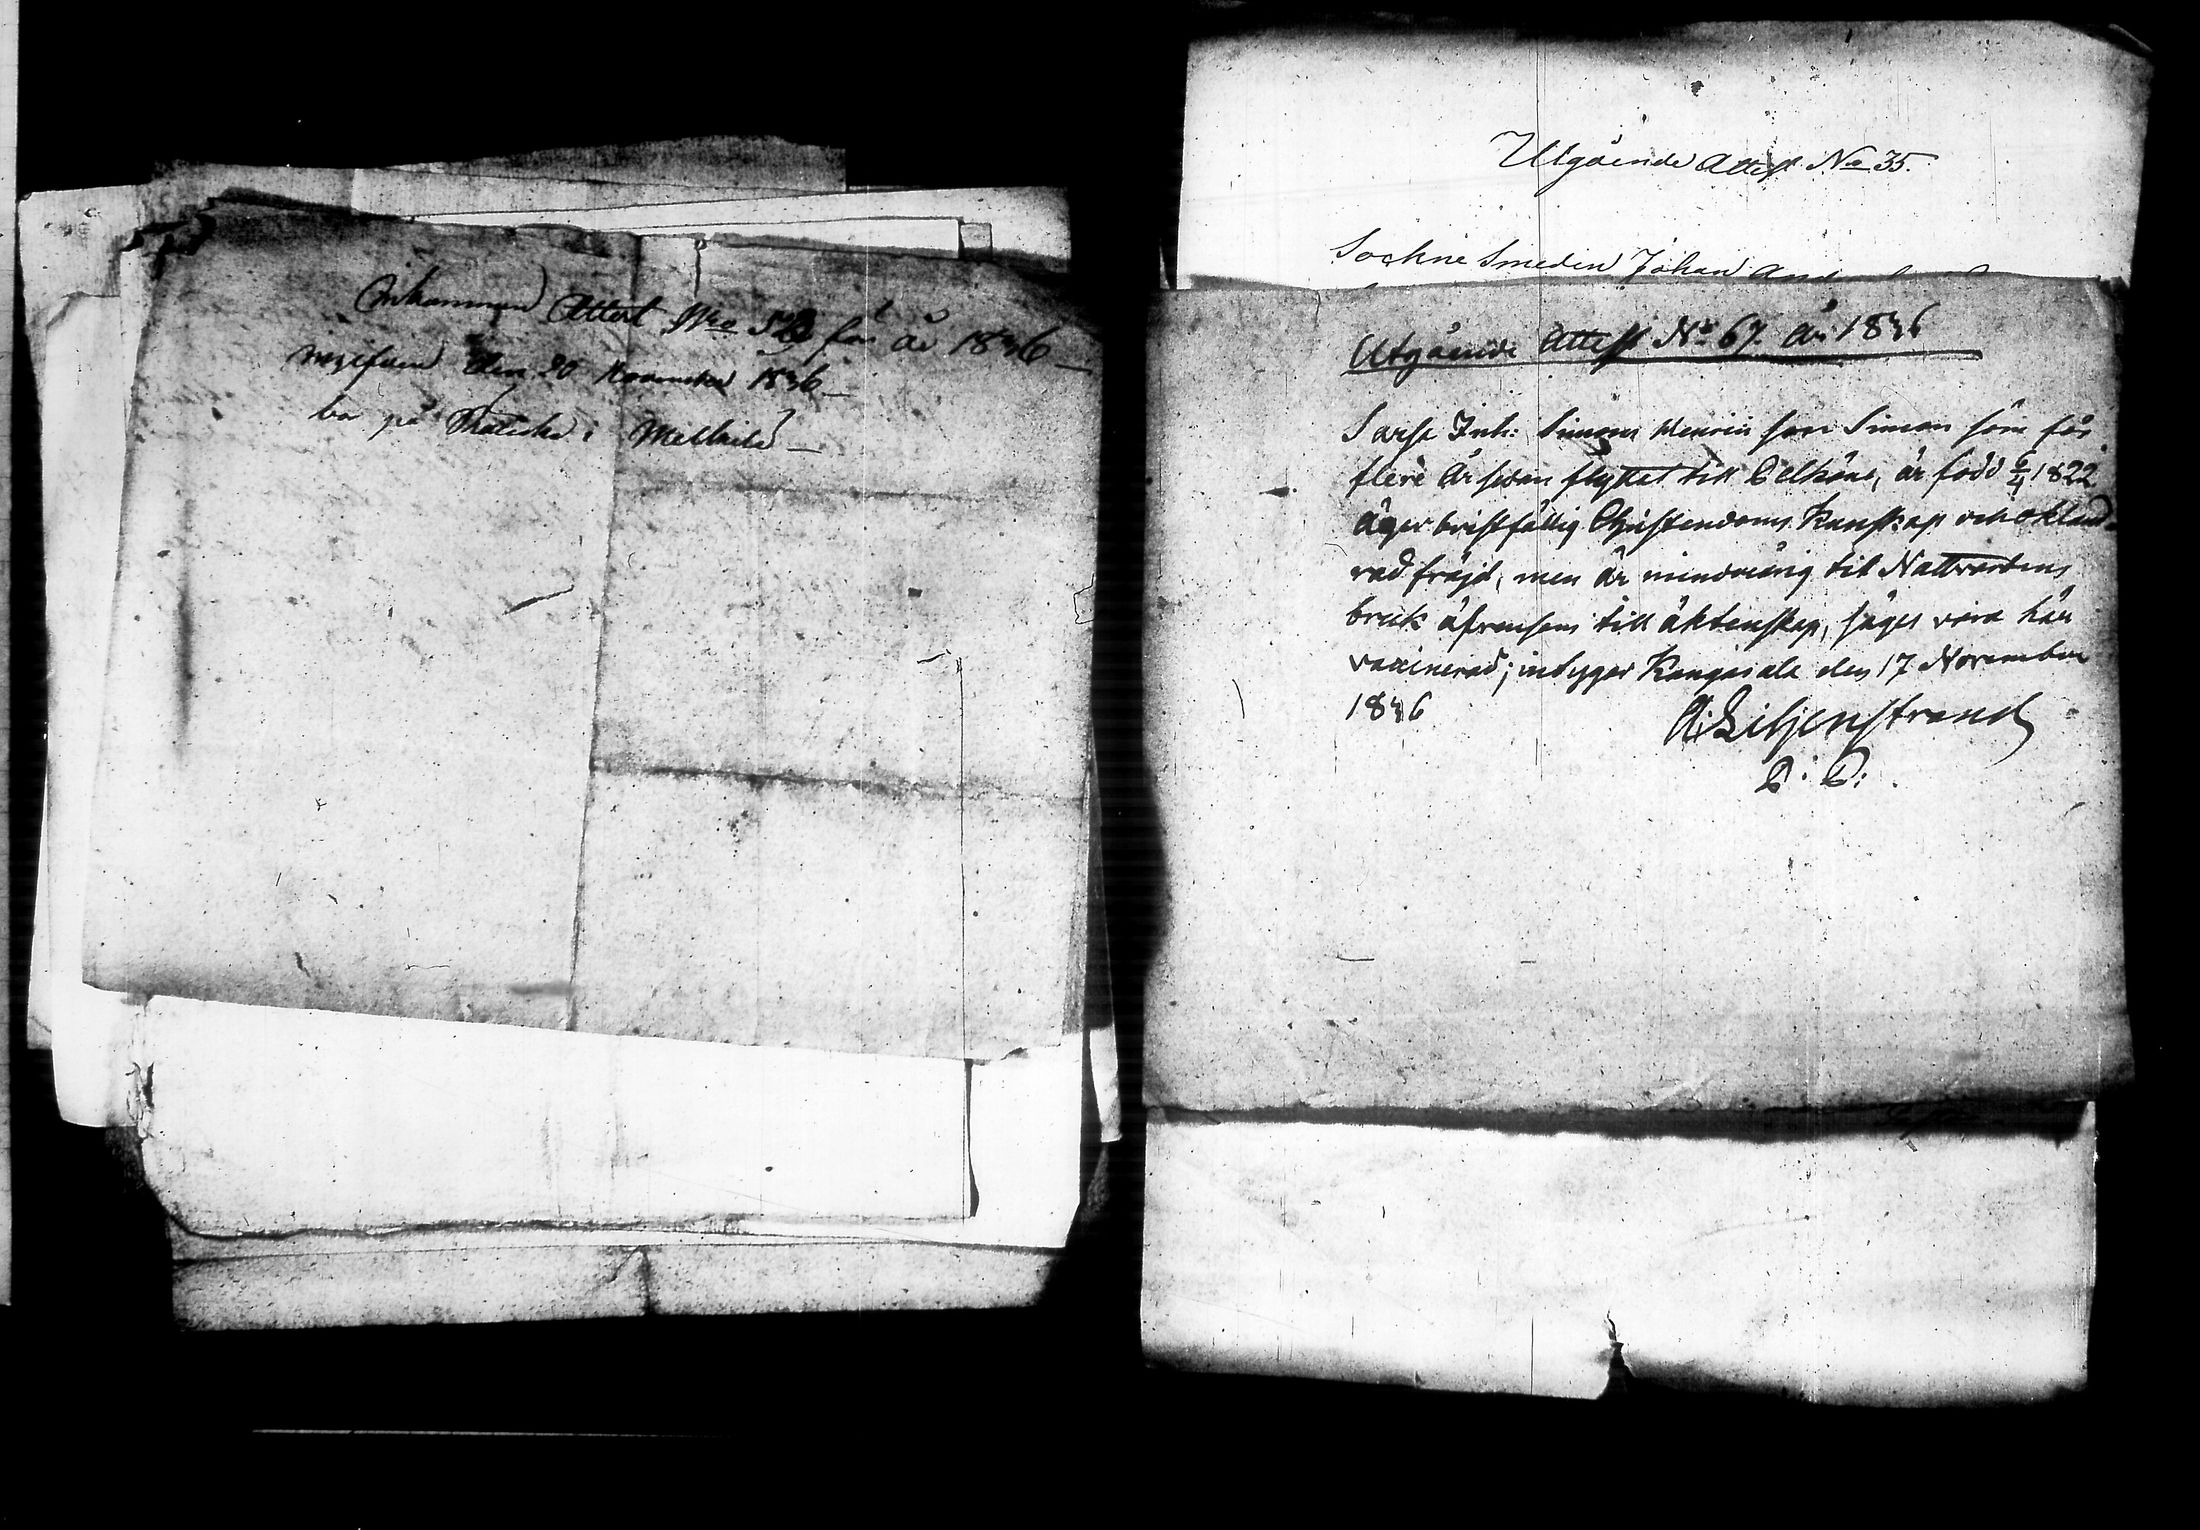 Inkommen Attest No 52 för år 1846
uppgifven den 20 November 1846
bor på i Mellkilä
Utgående Attest No 35.
Sockne Smeden Johan And
Utgående Attest No 67. År 1846
Sarsa Inh: Simon son Simon som för
flere År sedan flyttat till Pelkäne, är född 6/4 1822
äger bristfällig Christendoms Kunskap och okland-
rad fräjd, men är minderårig till Nattvardens
bruk äfvensom till äktenskap, säges vara här
vaccinerad; intygar Kangasala den 17 November
1846
A: Liljenstrand